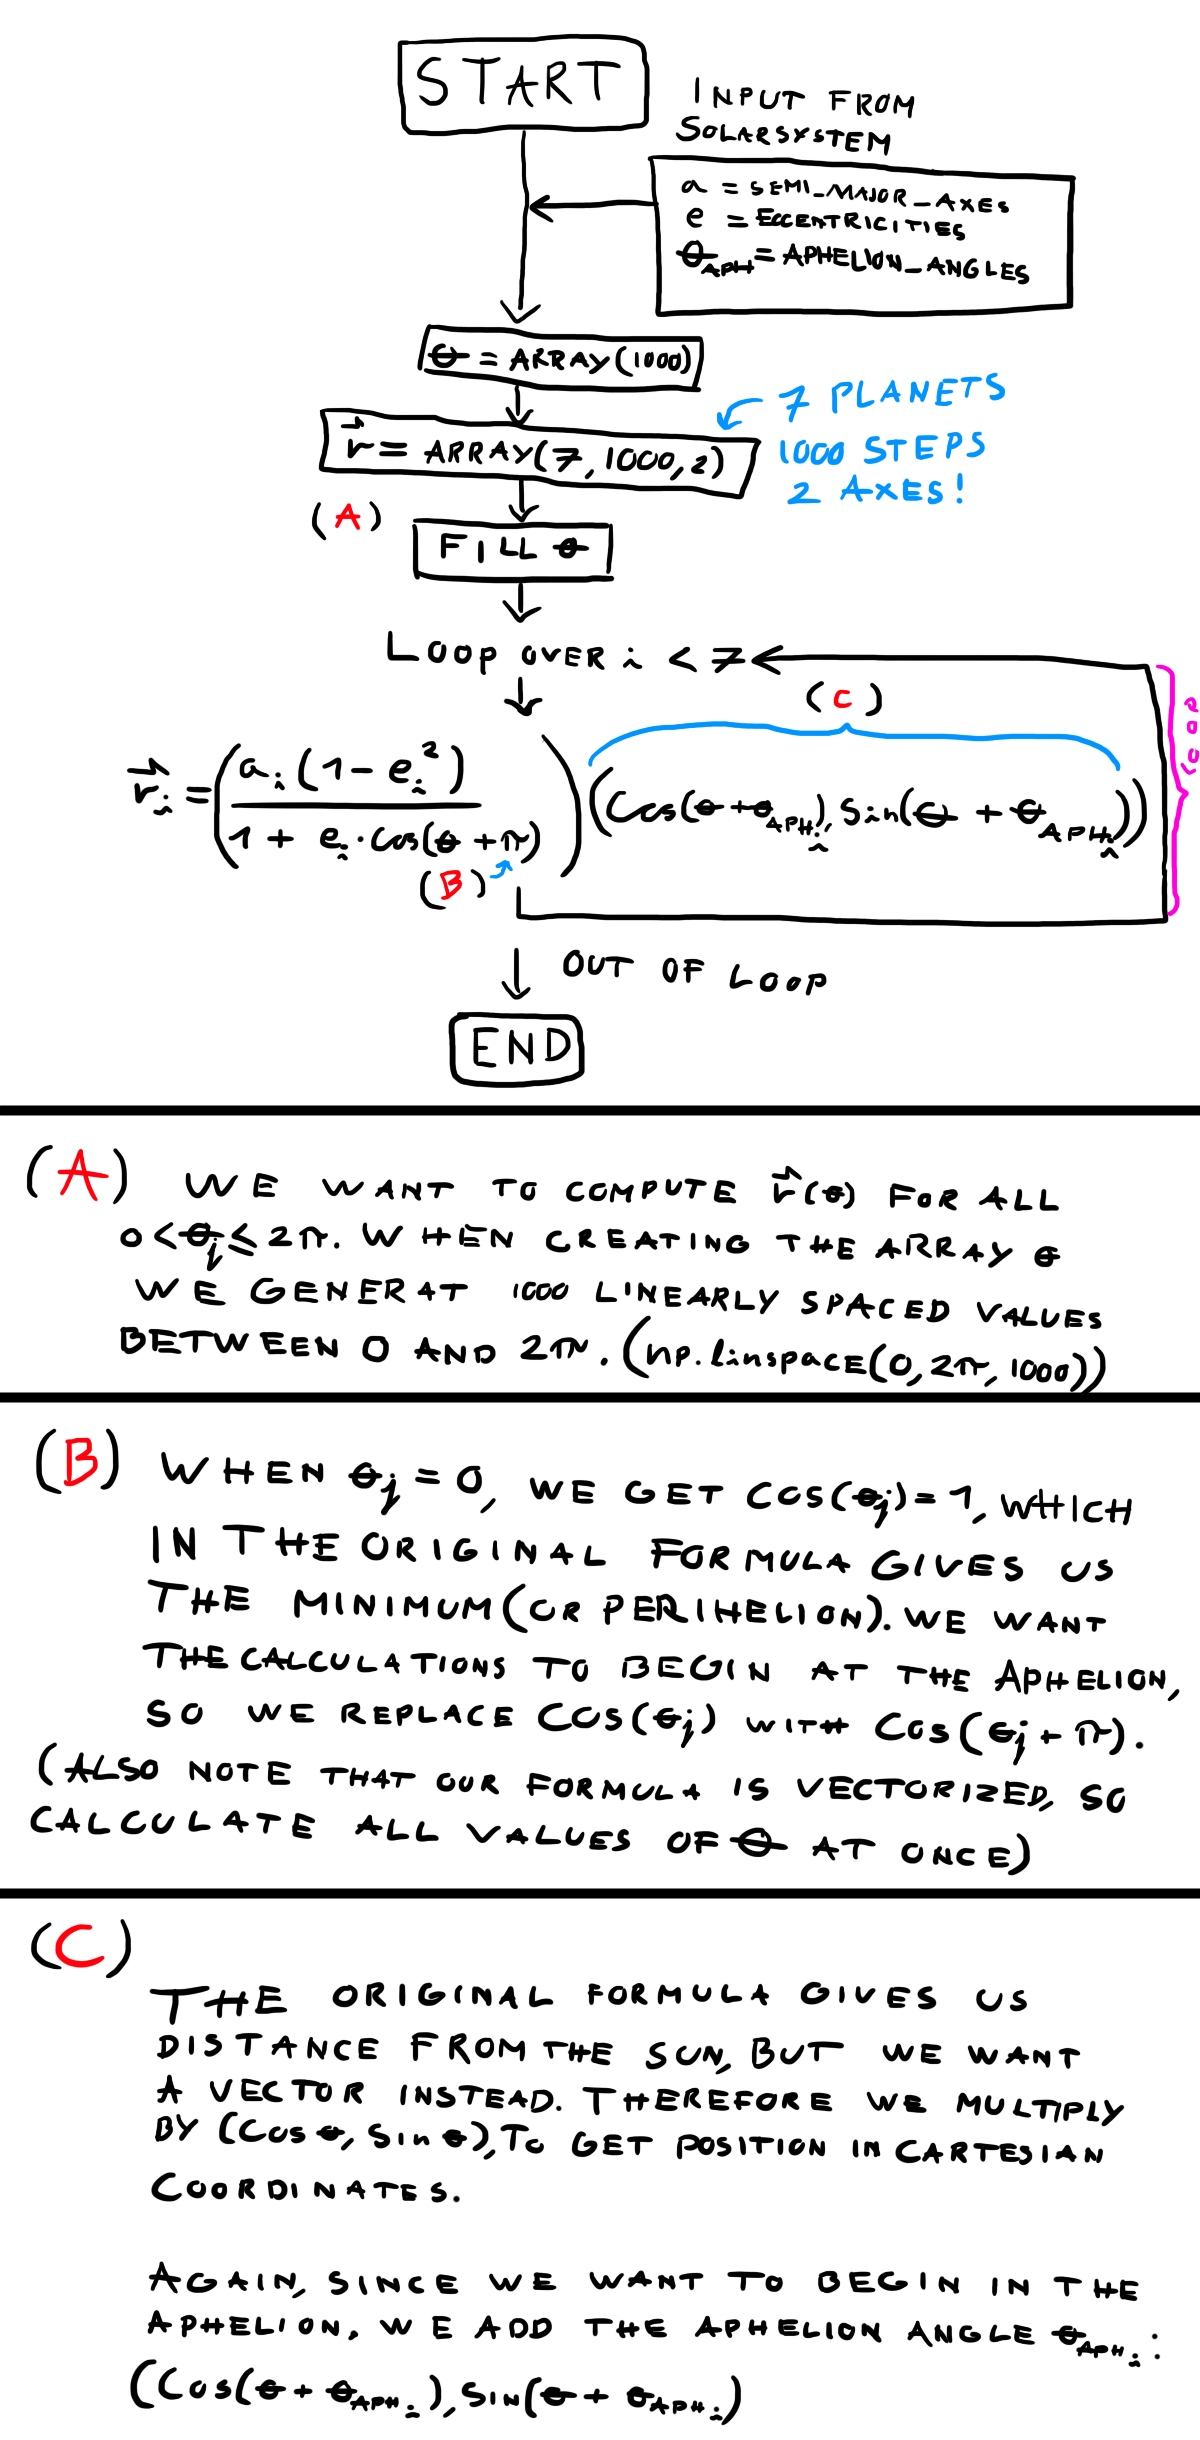 START
INPUT FROM
SOLARSYSTEM
a = SEMI_MAJOR_AXES
e = ECCENTRICITIES
θ_APH = APHELION_ANGLES
θ = ARRAY(1000)
r⃗ = ARRAY(7, 1000, 2)
7 PLANETS
1000 STEPS
2 AXES!
(A)
FILL θ
LOOP OVER i < 7
(C)
LOOP
r⃗_i = (a_i(1-e_i²) / 1 + e_i·cos(θ+π)) (Cos(θ+θ_APH_i), Sin(θ + θ_APH_i))
(B)
OUT OF LOOP
END
(A) WE WANT TO COMPUTE r⃗(θ) FOR ALL
0<θ_j≤2π. WHEN CREATING THE ARRAY θ
WE GENERAT 1000 LINEARLY SPACED VALUES
BETWEEN 0 AND 2π. (np.linspace(0, 2π, 1000))
(B) WHEN θ_j = 0, WE GET COS(θ_j)=1, WHICH
IN THE ORIGINAL FORMULA GIVES US
THE MINIMUM (OR PERIHELION). WE WANT
THE CALCULATIONS TO BEGIN AT THE APHELION,
SO WE REPLACE COS(θ_j) WITH COS(θ_j + π).
(ALSO NOTE THAT OUR FORMULA IS VECTORIZED, SO
CALCULATE ALL VALUES OF θ AT ONCE)
(C)
THE ORIGINAL FORMULA GIVES US
DISTANCE FROM THE SUN, BUT WE WANT
A VECTOR INSTEAD. THEREFORE WE MULTIPLY
BY (Cos θ, Sin θ), TO GET POSITION IN CARTESIAN
COORDINATES.
AGAIN, SINCE WE WANT TO BEGIN IN THE
APHELION, WE ADD THE APHELION ANGLE θ_APH_i:
(Cos(θ + θ_APH_i), SIN(θ + θ_APH_i)